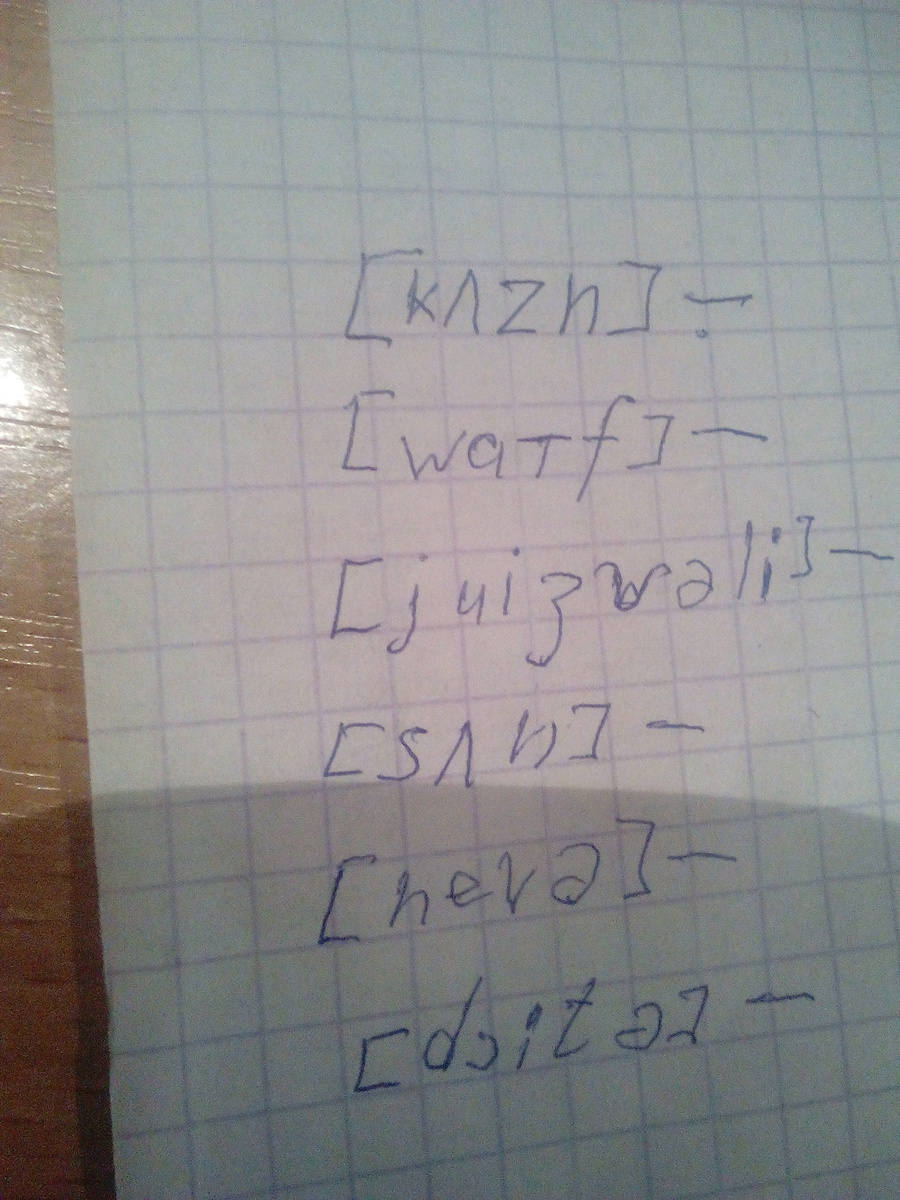 [kʌzn] –
[waɪf] –
[juiʒwəli] –
[sʌn] –
[nevə] –
[dɔitə] –